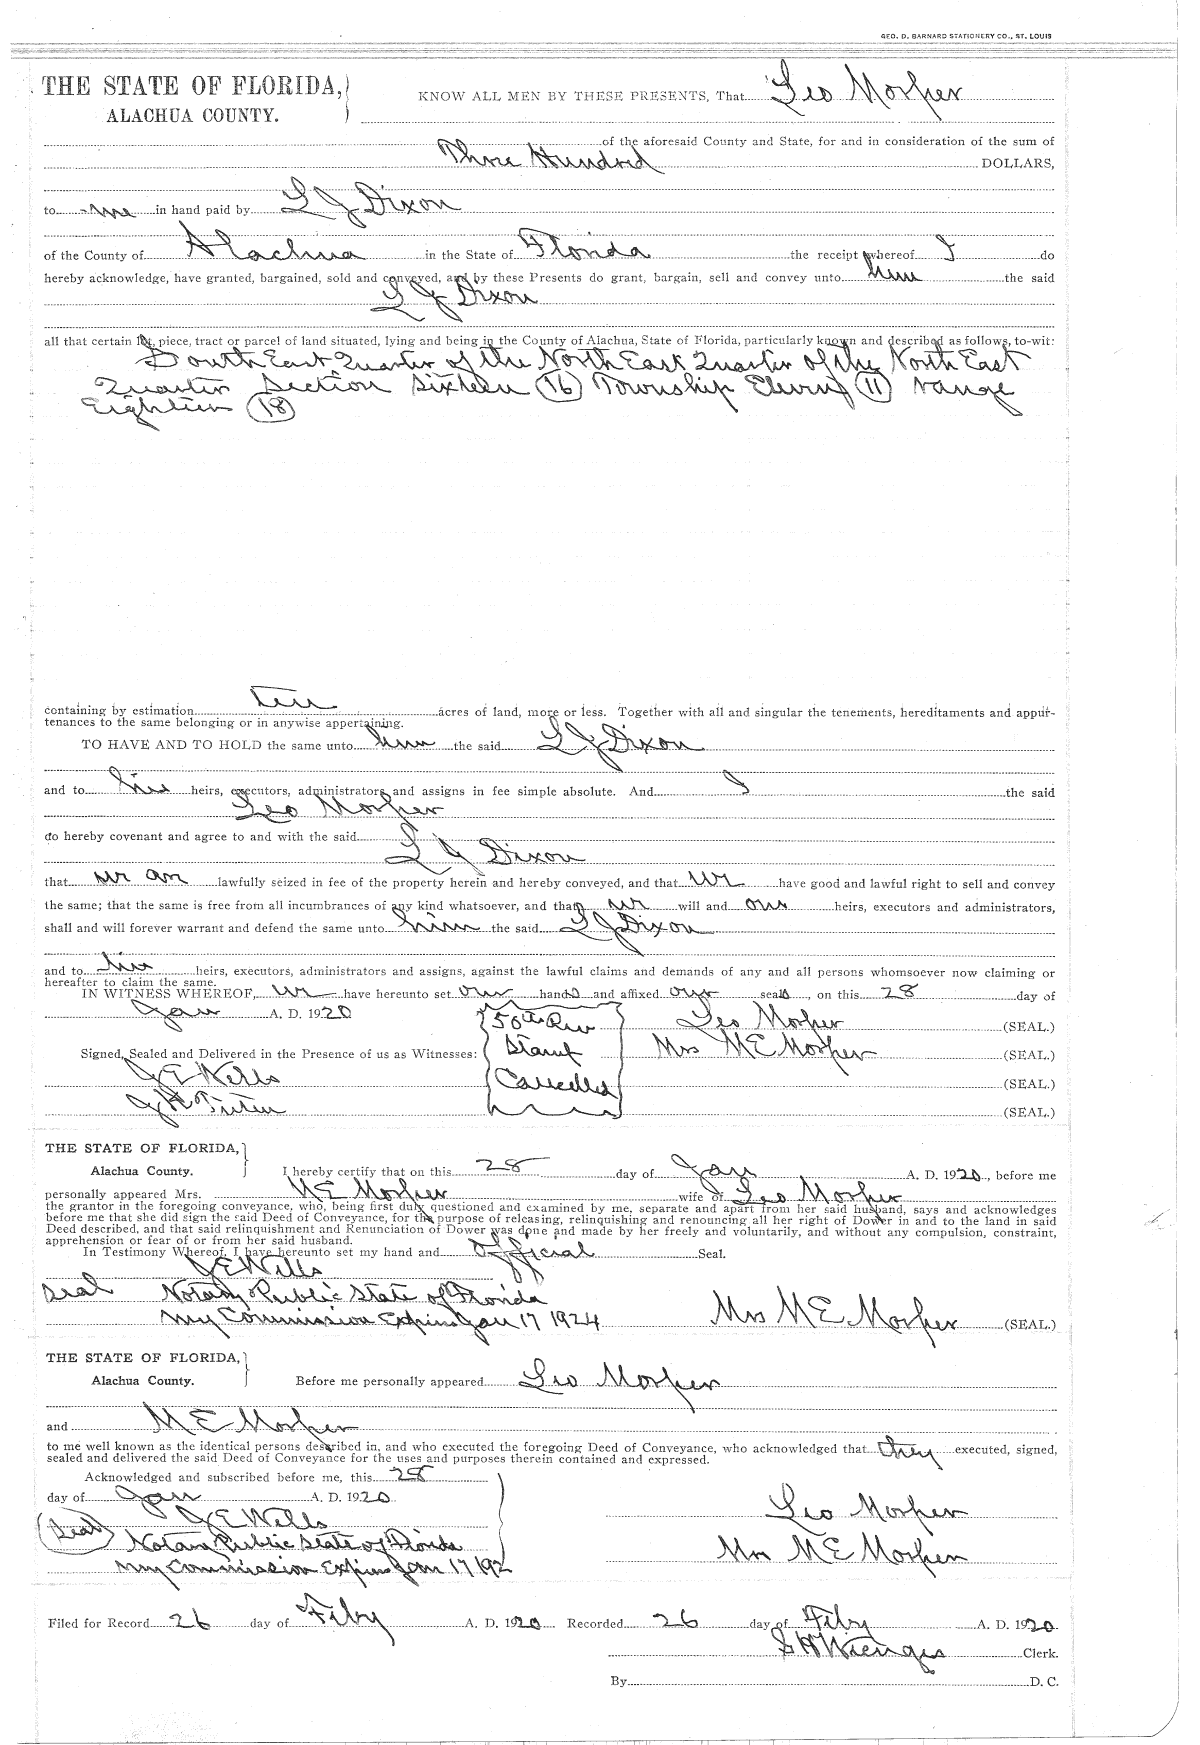 GEO. D. BARNARD STATIONERY CO., ST. LOUIS
THE STATE OF FLORIDA,
ALACHUA COUNTY.
KNOW ALL MEN BY THESE PRESENTS, That Geo Mosher
of the aforesaid County and State, for and in consideration of the sum of
Three Hundred DOLLARS,
to me in hand paid by L J Dixon
of the County of Alachua in the State of Florida the receipt whereof I do
hereby acknowledge, have granted, bargained, sold and conveyed, and by these Presents do grant, bargain, sell and convey unto him the said
L J Dixon
all that certain lot, piece, tract or parcel of land situated, lying and being in the County of Alachua, State of Florida, particularly known and described as follows, to-wit:
South East Quarter of the North East Quarter of the North East
Quarter Section Sixteen (16) Township Eleven (11) range
Eighteen (18)
containing by estimation ten acres of land, more or less. Together with all and singular the tenements, hereditaments and appur-
tenances to the same belonging or in anywise appertaining.
TO HAVE AND TO HOLD the same unto him the said L J Dixon
and to his heirs, executors, administrators and assigns in fee simple absolute. And I the said
Geo Mosher
do hereby covenant and agree to and with the said
L J Dixon
that we are lawfully seized in fee of the property herein and hereby conveyed, and that we have good and lawful right to sell and convey
the same; that the same is free from all incumbrances of any kind whatsoever, and that we will and our heirs, executors and administrators,
shall and will forever warrant and defend the same unto him the said L J Dixon
and to his heirs, executors, administrators and assigns, against the lawful claims and demands of any and all persons whomsoever now claiming or
hereafter to claim the same.
IN WITNESS WHEREOF, we have hereunto set our hands and affixed our seals, on this 28 day of
Jan A. D. 1920 50cts Rev Geo Mosher (SEAL.)
Signed, Sealed and Delivered in the Presence of us as Witnesses: Stamp Mrs M E Mosher (SEAL.)
J E Wells Cancelled (SEAL.)
(SEAL.)
THE STATE OF FLORIDA,
Alachua County. I hereby certify that on this 28 day of Jan A. D. 1920, before me
personally appeared Mrs. M E Mosher wife of Geo Mosher
the grantor in the foregoing conveyance, who, being first duly questioned and examined by me, separate and apart from her said husband, says and acknowledges
before me that she did sign the said Deed of Conveyance, for the purpose of releasing, relinquishing and renouncing all her right of Dower in and to the land in said
Deed described, and that said relinquishment and Renunciation of Dower was done and made by her freely and voluntarily, and without any compulsion, constraint,
apprehension or fear of or from her said husband.
In Testimony Whereof, I have hereunto set my hand and official Seal.
J E Wells
Seal Notary Public State of Florida
My Commission Expires Jan 17 1924 Mrs M E Mosher (SEAL.)
THE STATE OF FLORIDA,
Alachua County. Before me personally appeared Geo Mosher
and M E Mosher
to me well known as the identical persons described in, and who executed the foregoing Deed of Conveyance, who acknowledged that they executed, signed,
sealed and delivered the said Deed of Conveyance for the uses and purposes therein contained and expressed.
Acknowledged and subscribed before me, this 28
day of Jan A. D. 1920 Geo Mosher
J E Wells
(Seal) Notary Public State of Florida Mrs M E Mosher
My Commission Expires Jan 17 192
Filed for Record 26 day of Feby A. D. 1920 Recorded 26 day of Feby A. D. 1920
S H Wienges Clerk.
By D. C.